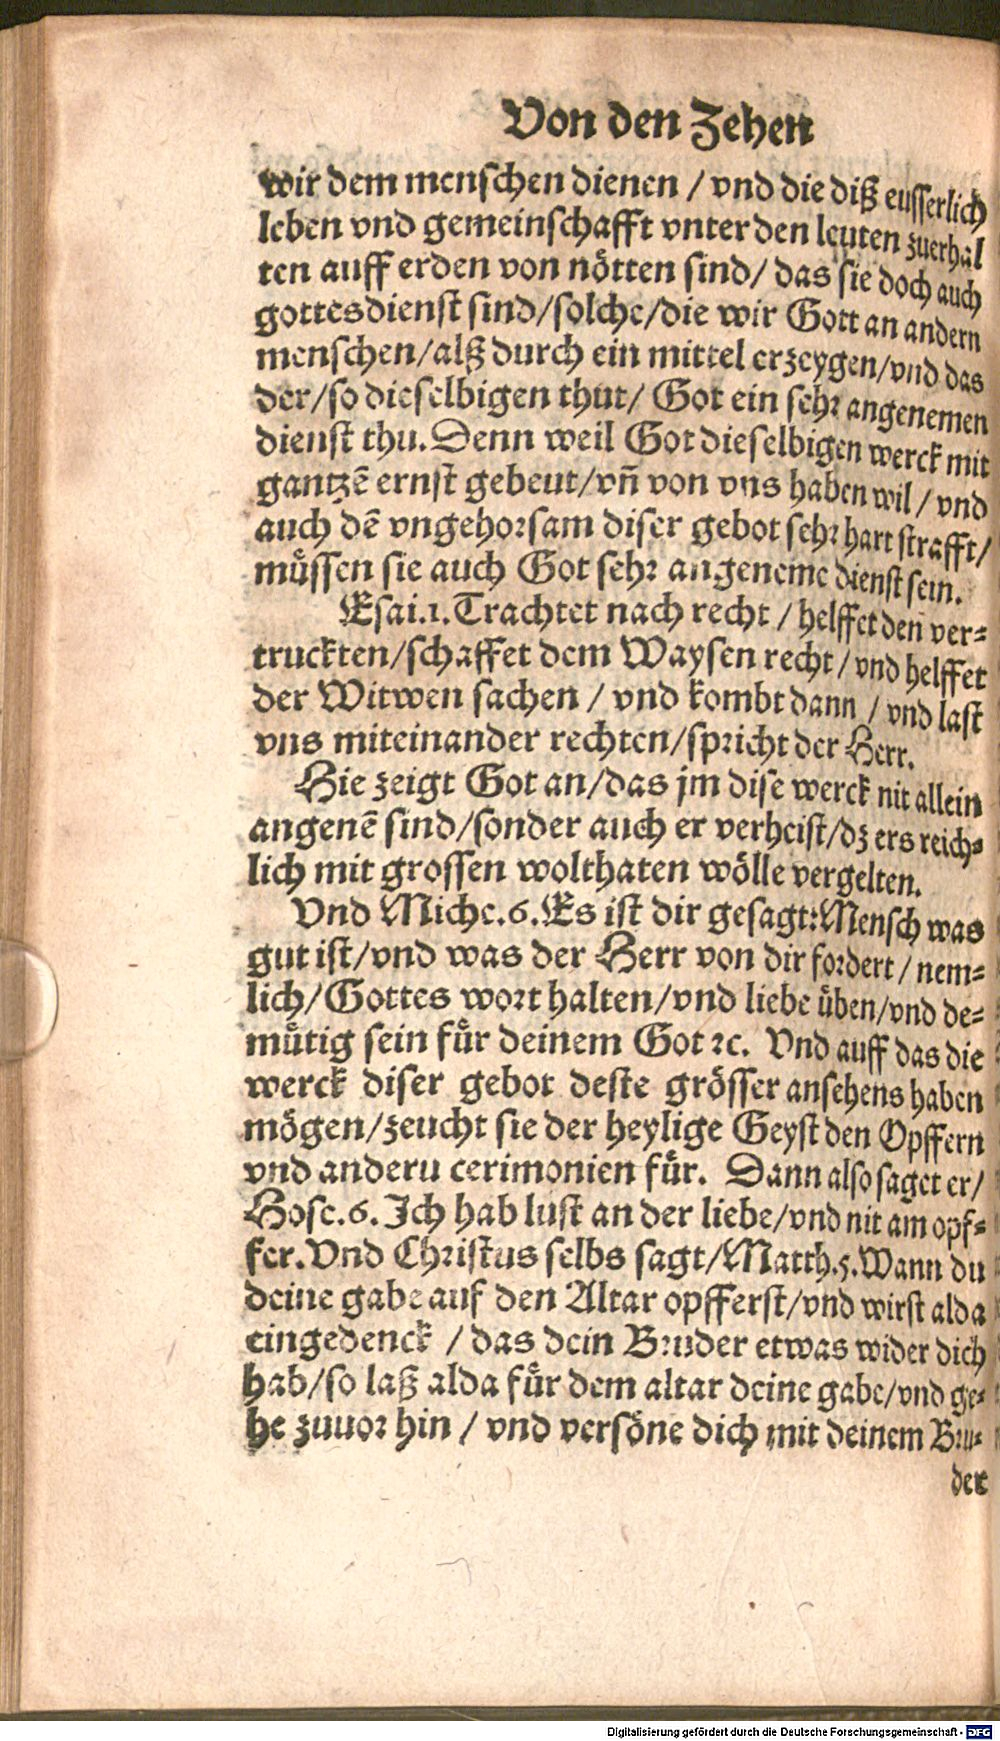 Von den Zehen
wir dem menschen dienen / vnd die diß eusserlich
leben vnd gemeinschafft vnter den leuten zuerhal
ten auff erden von nötten sind/ das sie doch auch
gottesdienst sind/solche/die wir Gott an andern
menschen/alß durch ein mittel erzeygen/vnd das
der/so dieselbigen thut/ Got ein sehr angenemen
dienst thu. Denn weil Got dieselbigen werck mit
gantzē ernst gebeut/vñ von vns haben wil / vnd
auch dē vngehorsam diser gebot sehr hart strafft/
müssen sie auch Got sehr angeneme dienst sein.
Esai.1. Trachtet nach recht / helffet den ver-
truckten/schaffet dem Waysen recht/ vnd helffet
der Witwen sachen / vnd kombt dann / vnd last
vns miteinander rechten/spricht der Herr.
Hie zeigt Got an/das jm dise werck nit allein
angenē sind/sonder auch er verheist/dz ers reich-
lich mit grossen wolthaten wölle vergelten.
Vnd Miche.6. Es ist dir gesagt: Mensch was
gut ist/vnd was der Herr von dir fordert / nem-
lich/Gottes wort halten/vnd liebe üben/vnd de-
mütig sein für deinem Got ꝛc. Vnd auff das die
werck diser gebot deste grösser ansehens haben
mögen/zeucht sie der heylige Geyst den Opffern
vnd anderu cerimonien für. Dann also saget er/
Hose.6. Ich hab lust an der liebe/vnd nit am opf-
fer. Vnd Christus selbs sagt/Matth.5. Wann du
deine gabe auf den Altar opfferst/vnd wirst alda
eingedenck / das dein Bruder etwas wider dich
hab/so laß alda für dem altar deine gabe/vnd ge-
he zuuor hin / vnd versöne dich mit deinem Bru-
der
Digitalisierung gefördert durch die Deutsche Forschungsgemeinschaft - DFG